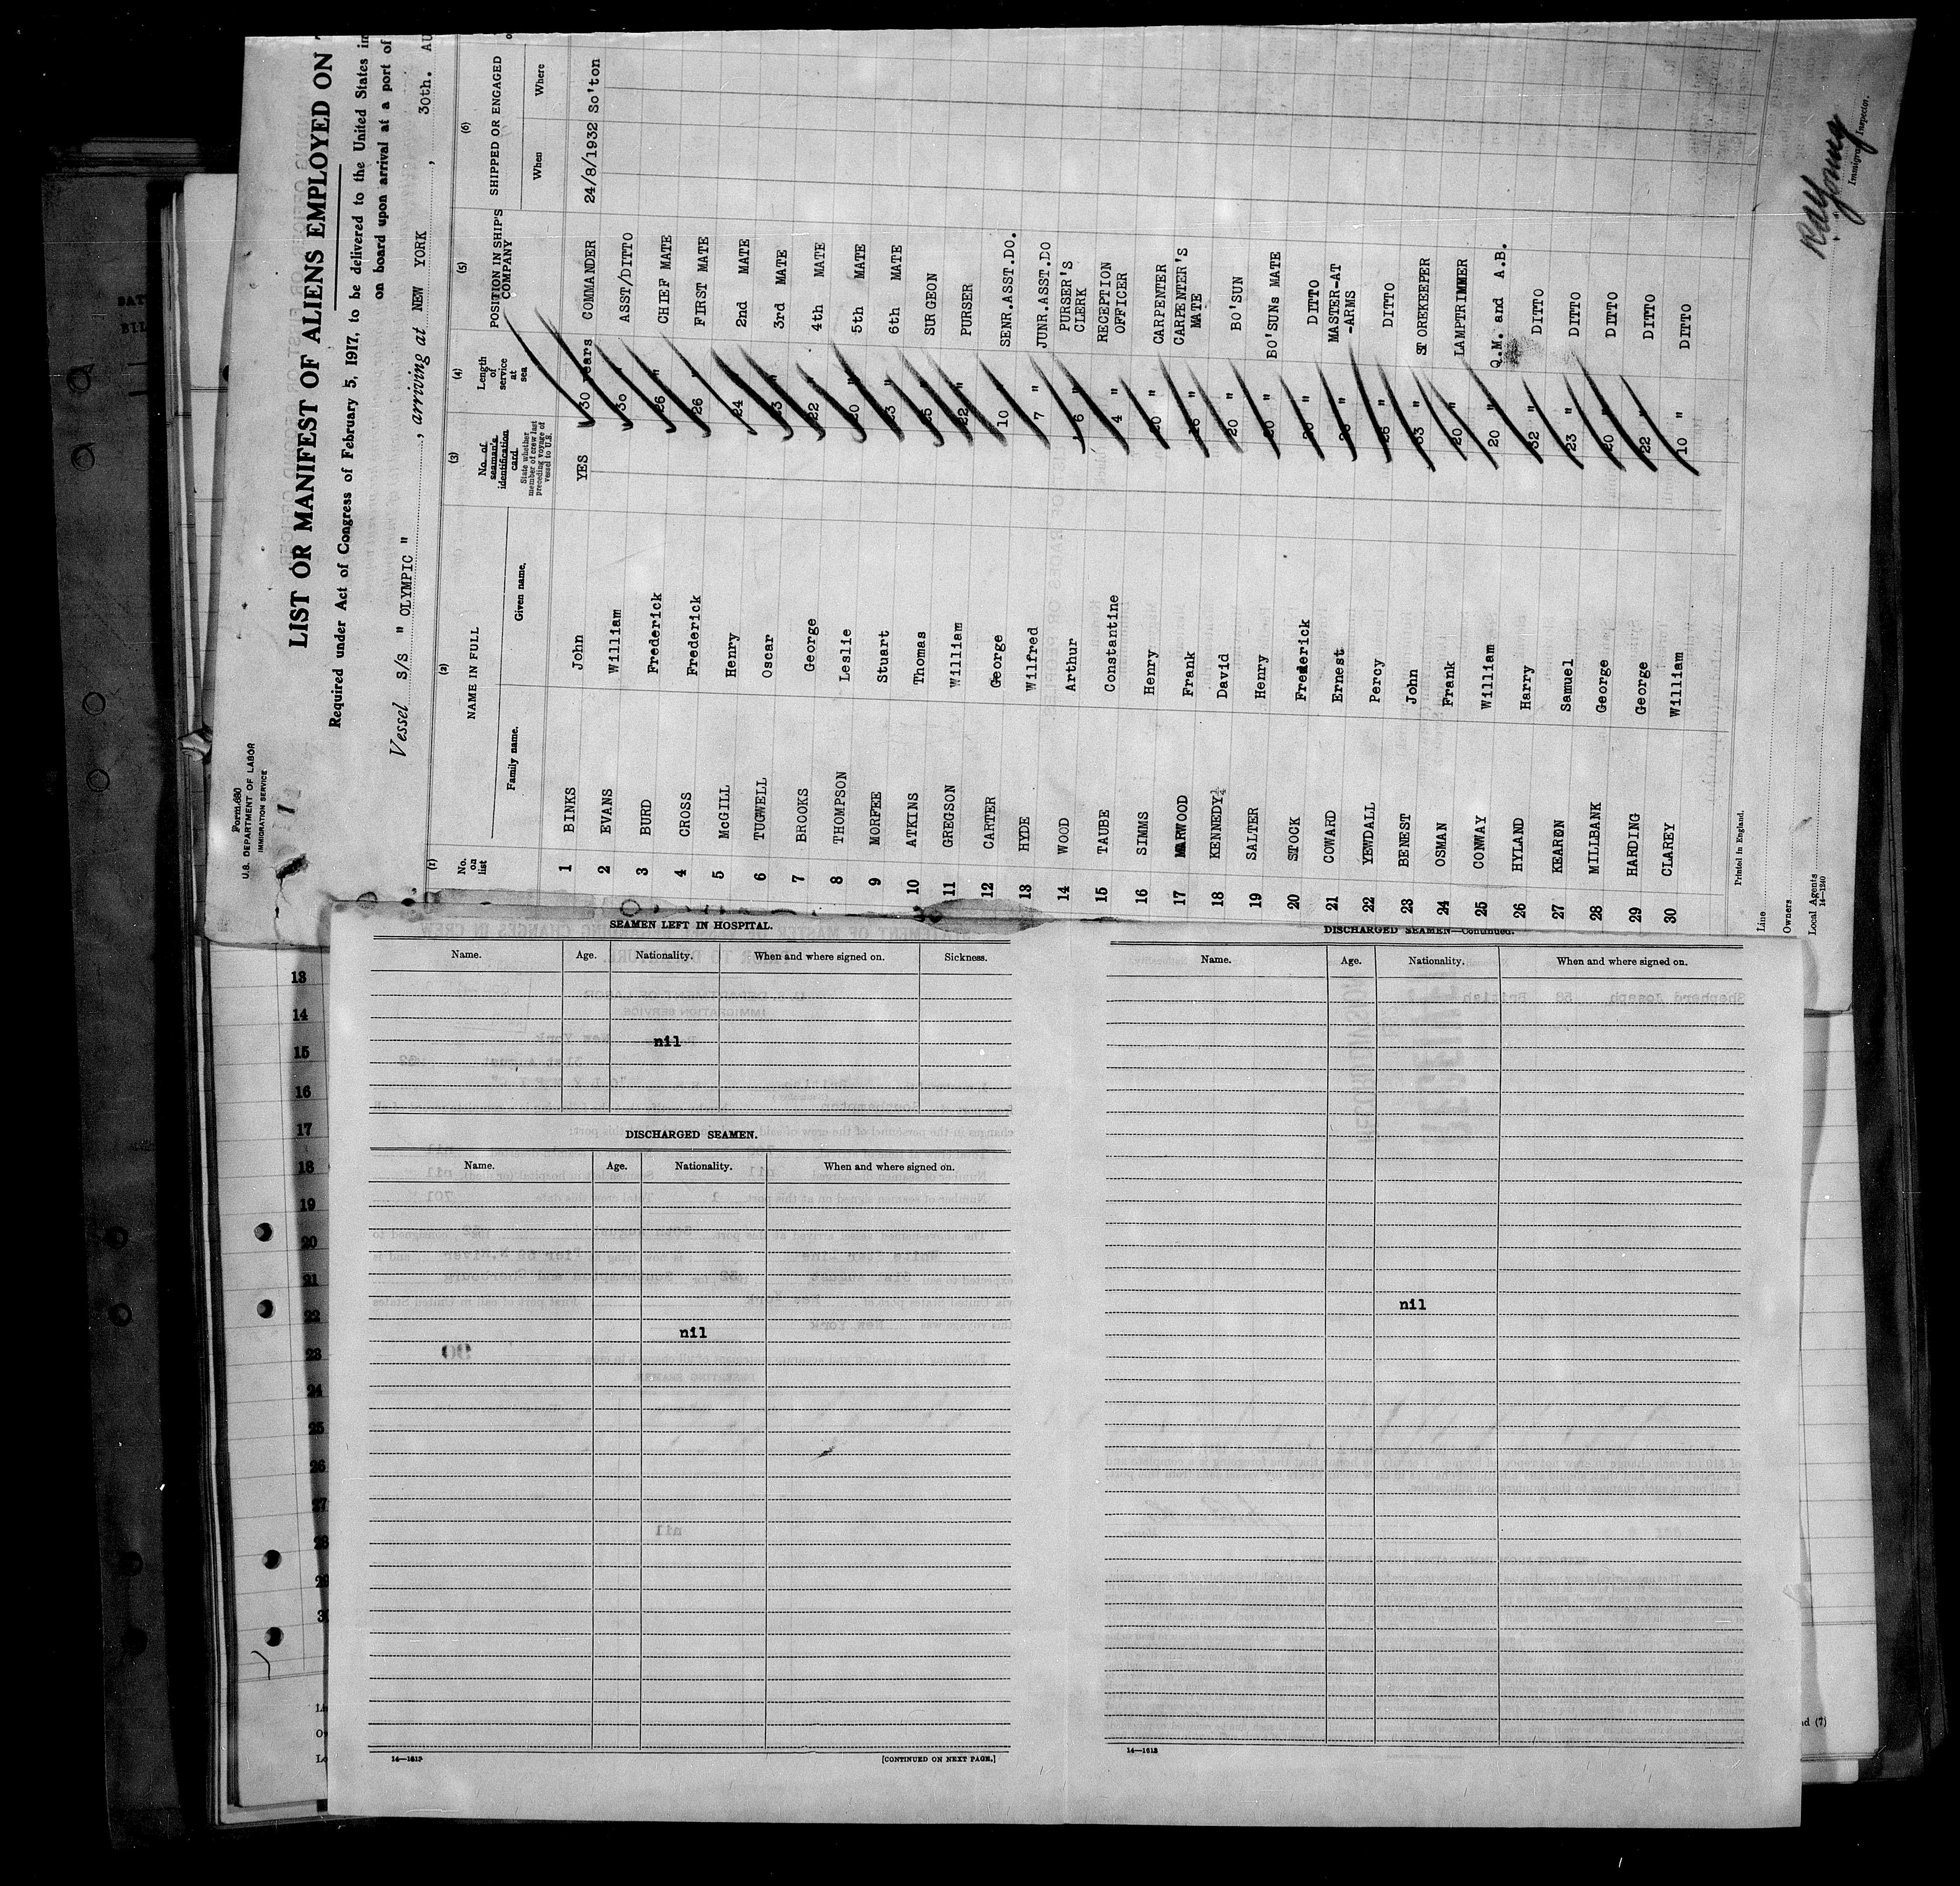 Form 690
U.S. DEPARTMENT OF LABOR
IMMIGRATION SERVICE
1
LIST OR MANIFEST OF ALIENS EMPLOYED ON
Required under Act of Congress of February 5, 1917, to be delivered to the United States
on board upon arrival at a port of
Vessel S/s " OLYMPIC " , arriving at NEW YORK , 30th. AU
(1) (2) (3) (4) (5) (6)
No. on list NAME IN FULL No. of seaman's identification card. Length of service at sea POSITION IN SHIP'S COMPANY SHIPPED OR ENGAGED
Family name. Given name. State whether member of crew last preceding voyage of vessel to U.S. When Where
1 BINKS John YES 30 years COMMANDER 24/8/1932 So'ton
2 EVANS William 30 " ASST/DITTO
3 BURD Frederick 26 " CHIEF MATE
4 CROSS Frederick 26 " FIRST MATE
5 McGILL Henry 24 " 2nd MATE
6 TUGWELL Oscar 23 " 3rd MATE
7 BROOKS George 22 " 4th MATE
8 THOMPSON Leslie 20 " 5th MATE
9 MORFEE Stuart 23 " 6th MATE
10 ATKINS Thomas " SURGEON
11 GREGSON William 22 " PURSER
12 CARTER George 10 " SENR.ASST.DO.
13 HYDE Wilfred 7 " JUNR.ASST.DO
14 WOOD Arthur 6 " PURSER'S CLERK
15 TAUBE Constantine 4 " RECEPTION OFFICER
16 SIMMS Henry 20 " CARPENTER
17 MARWOOD Frank " CARPENTER'S MATE
18 KENNEDY David 20 " BO'SUN
19 SALTER Henry 20 " BO'SUNs MATE
20 STOCK Frederick 20 " DITTO
21 COWARD Ernest " MASTER-AT -ARMS
22 YEWDALL Percy 26 " DITTO
23 BENEST John 33 " STOREKEEPER
24 OSMAN Frank 20 " LAMPTRIMMER
25 CONWAY William 20 " Q.M. and A.B.
26 HYLAND Harry 32 " DITTO
27 KEARON Samuel 23 " DITTO
28 MILLBANK George 20 " DITTO
29 HARDING George 22 " DITTO
30 CLAREY William 10 " DITTO
Printed in England.
Line
Owners
Local Agents
14—1240
Immigrant Inspector.
SEAMEN LEFT IN HOSPITAL.
Name. Age. Nationality. When and where signed on. Sickness.
nil
DISCHARGED SEAMEN.
Name. Age. Nationality. When and where signed on.
nil
14—1613
[CONTINUED ON NEXT PAGE.]
DISCHARGED SEAMEN—Continued.
Name. Age. Nationality. When and where signed on.
nil
14—1613
13
14
15
16
17
18
19
20
21
22
23
24
25
26
27
28
29
nd (7)